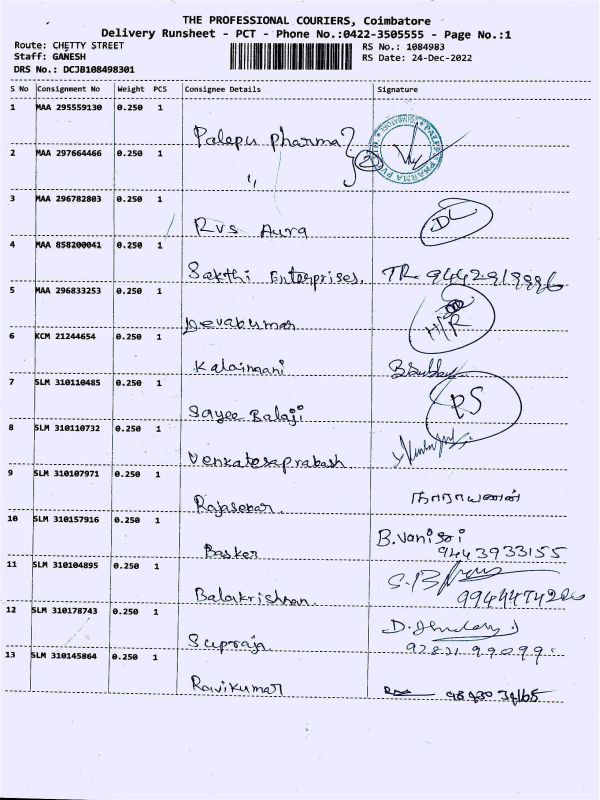 THE PROFESSIONAL COURIERS, Coimbatore
Delivery Runsheet - PCT - Phone No.:0422-3505555 - Page No.:1
Route: CHETTY STREET
RS No.: 1084983
Staff: GANESH
RS Date: 24-Dec-2022
DRS No.: DCJB108498301
S No Consignment No Weight PCS Consignee Details Signature
1 MAA 295559130 0.250 1 Palepu Pharma
2 MAA 297664466 0.250 1 " 2
3 MAA 296782803 0.250 1 RVS Aura
4 MAA 858200041 0.250 1 Sakthi Enterprises.
5 MAA 296833253 0.250 1 Devakumar H/R
6 KCM 21244654 0.250 1 Kalaimani
7 SLM 310110485 0.250 1 Sayee Balaji RS
8 SLM 310110732 0.250 1 Venkatesaprabash
9 SLM 310107971 0.250 1 Rajasekar. நாராயணன்
10 SLM 310157916 0.250 1 Basker B.Vanisri
9443933155
11 SLM 310104895 0.250 1 Balakrishnan.
12 SLM 310178743 0.250 1 Supraja
13 SLM 310145864 0.250 1 Ravikumar